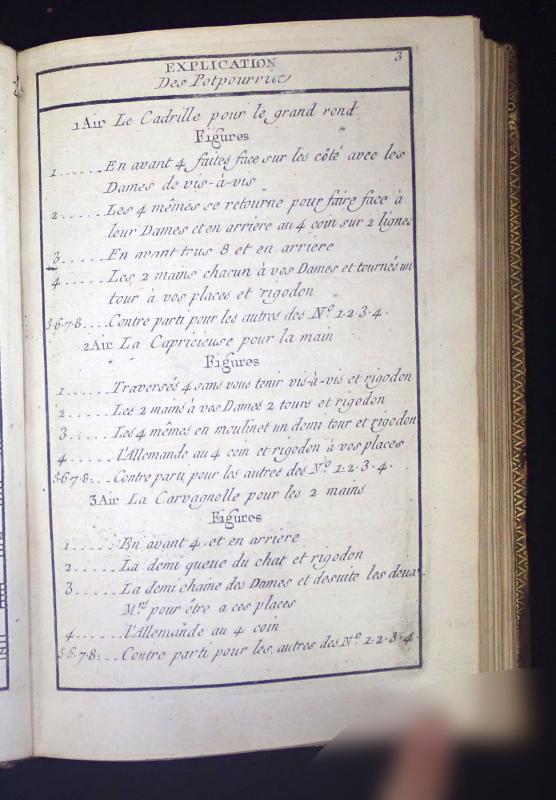 3
EXPLICATION
Des Potpourris
1 Air Le Cadrille pour le grand rond
Figures
1......En avant 4 faites face sur les côté avec les
Dames de vis-à-vis
2......Les 4 mêmes se retourne pour faire face à
leur Dames et en arriere au 4 coin sur 2 lignes
3......En avant tous 8 et en arriere
4......Les 2 mains chacun à vos Dames et tournés un
tour à vos places et rigodon
5·6·7·8....Contre parti pour les autres des Nº 1·2·3·4.
2 Air La Capricieuse pour la main
Figures
1......Traversés 4 sans vous tenir vis-à-vis et rigodon
2......Les 2 mains à vos Dames 2 tours et rigodon
3......Les 4 mêmes en moulinet un demi tour et rigodon
4......l'Allemande au 4 coin et rigodon à vos places
5·6·7·8:...Contre parti pour les autres des Nº 1·2·3·4.
3 Air La Carvagnolle pour les 2 mains
Figures
1......En avant 4 et en arriere
2......La demi queue du chat et rigodon
3......La demi chaine des Dames et desuite les deux
Mrs pour être a ces places
4......l'Allemande au 4 coin
5·6·7·8:...Contre parti pour les autres des Nº 1·2·3·4.